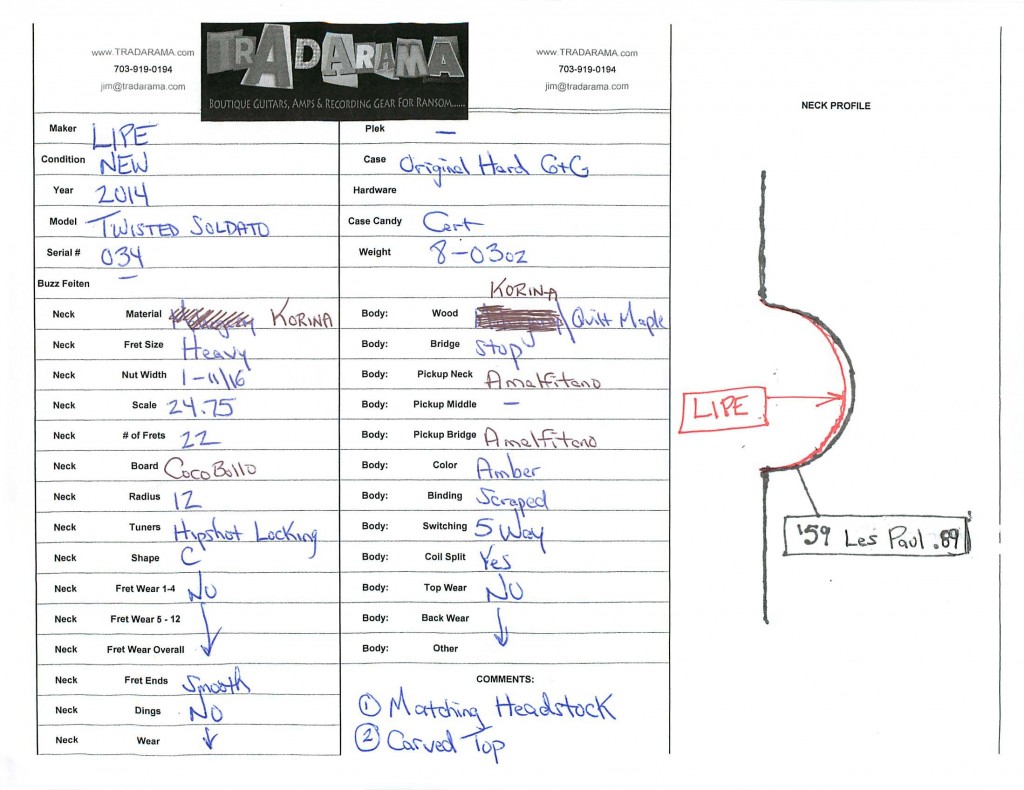 www.TRADARAMA.com
703-919-0194
jim@tradarama.com
TRADARAMA
BOUTIQUE GUITARS, AMPS & RECORDING GEAR FOR RANSOM......
www.TRADARAMA.com
703-919-0194
jim@tradarama.com
Maker LIPE
Condition NEW
Year 2014
Model TWISTED SOLDATO
Serial # 034
Buzz Feiten —
Neck Material KORINA
Neck Fret Size Heavy
Neck Nut Width 1-11/16
Neck Scale 24.75
Neck # of Frets 22
Neck Board CocoBollo
Neck Radius 12
Neck Tuners Hipshot Locking
Neck Shape C
Neck Fret Wear 1-4 NO
Neck Fret Wear 5 - 12
Neck Fret Wear Overall
Neck Fret Ends Smooth
Neck Dings NO
Neck Wear
Plek —
Case Original Hard G+G
Hardware
Case Candy Cert
Weight 8-03oz
KORINA
Body: Wood / Quilt Maple
Body: Bridge Stop
Body: Pickup Neck Amalfitano
Body: Pickup Middle —
Body: Pickup Bridge Amalfitano
Body: Color Amber
Body: Binding Scraped
Body: Switching 5 Way
Body: Coil Split Yes
Body: Top Wear NO
Body: Back Wear
Body: Other
COMMENTS:
1 Matching Headstock
2 Carved Top
NECK PROFILE
LIPE
'59 Les Paul .89